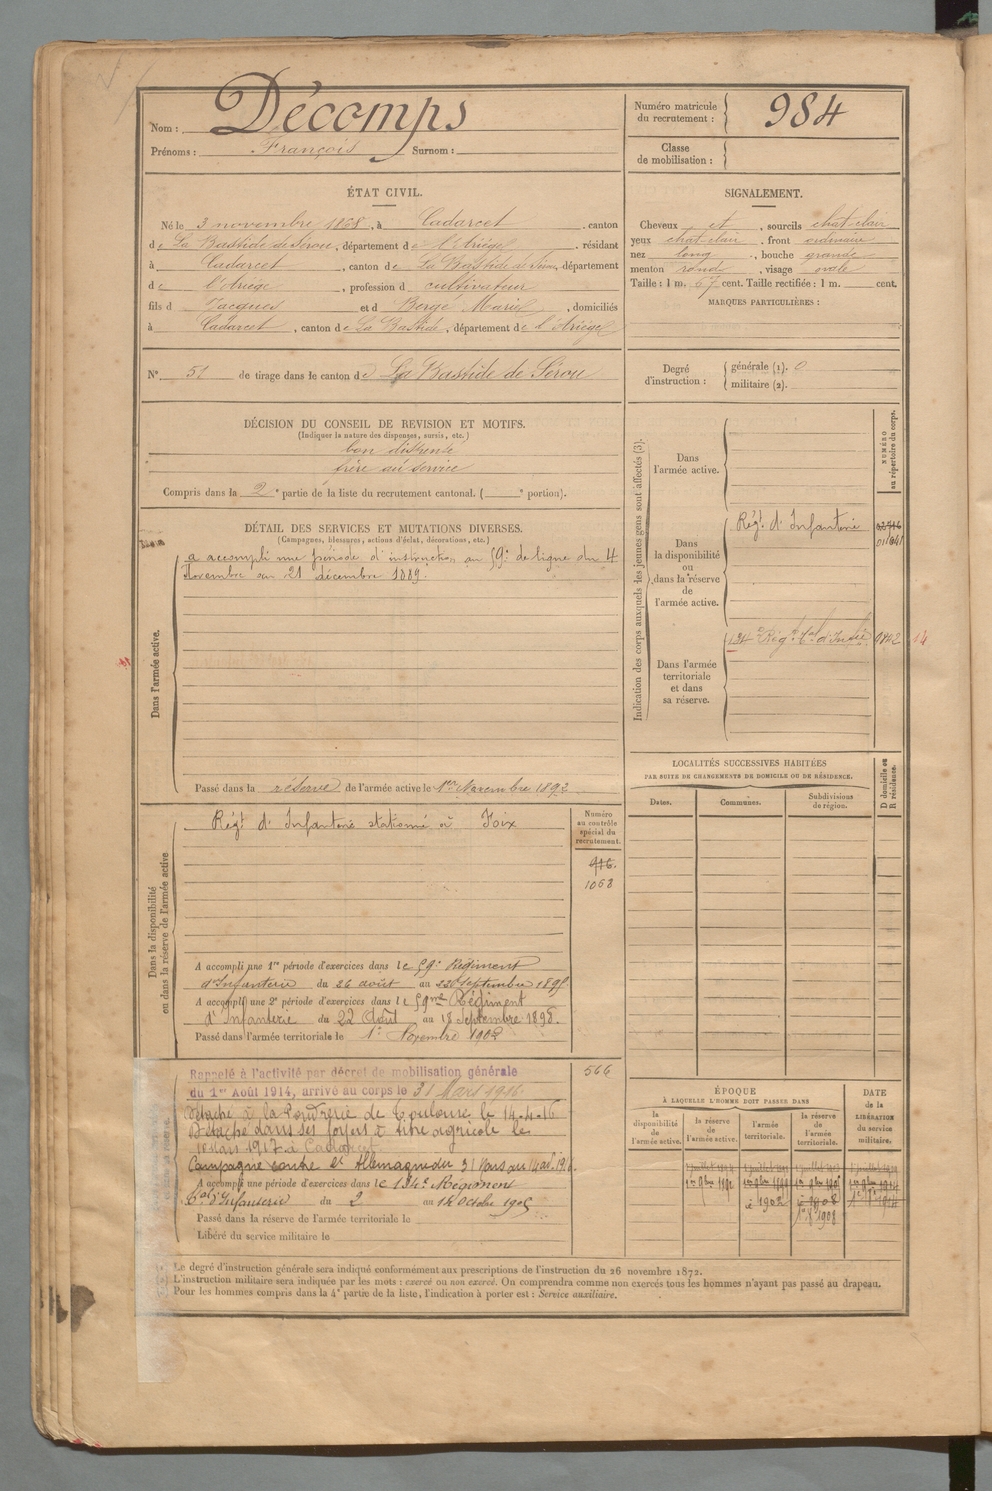 Nom : Décomps
Prénoms : François Surnom :
Numéro matricule du recrutement : 984
Classe de mobilisation :
ÉTAT CIVIL.
Né le 3 novembre 1868, à Cadarcet, canton
de La Bastide de Sérou, département de l'Ariège, résidant
à Cadarcet, canton de La Bastide de Sérou, département
de l'Ariège, profession d cultivateur
fils d Jacques et d Bergé Marie, domiciliés
à Cadarcet, canton de La Bastide, département de l'Ariège
SIGNALEMENT.
Cheveux et, sourcils chat-clair
yeux chat-clair, front ordinaire
nez long, bouche grande
menton rond, visage ovale
Taille : 1 m. 67 cent. Taille rectifiée : 1 m. cent.
MARQUES PARTICULIÈRES :
N° 51 de tirage dans le canton de La Bastide de Sérou
Degré d'instruction : générale (1). 0
militaire (2).
DÉCISION DU CONSEIL DE REVISION ET MOTIFS.
(Indiquer la nature des dispenses, sursis, etc.)
bon dispensé
frère au service
Compris dans la 2e partie de la liste du recrutement cantonal. ( e portion).
DÉTAIL DES SERVICES ET MUTATIONS DIVERSES.
(Campagnes, blessures, actions d'éclat, décorations, etc.)
Dans l'armée active.
a accompli une période d'instruction au 59e de ligne du 4
Novembre au 21 décembre 1889.
Passé dans la réserve de l'armée active le 1er Novembre 1892
Indication des corps auxquels les jeunes gens sont affectés (3).
NUMÉRO au répertoire du corps.
Dans l'armée active.
Dans la disponibilité ou dans la réserve de l'armée active.
Régt d'Infanterie
Dans l'armée territoriale et dans sa réserve.
134e Régt tal d'Infie
14
LOCALITÉS SUCCESSIVES HABITÉES
PAR SUITE DE CHANGEMENTS DE DOMICILE OU DE RÉSIDENCE.
Dates. Communes. Subdivisions de région.
D domicile ou R résidence.
Dans la disponibilité ou dans la réserve de l'armée active
Régt d'Infanterie stationné à Foix
Numéro au contrôle spécial du recrutement.
916.
1068
A accompli une 1re période d'exercices dans le 59e Régiment
d'Infanterie du 26 août au 22 Septembre 1895
A accompli une 2e période d'exercices dans le 59me Régiment
d'Infanterie du 22 Août au 18 Septembre 1898.
Passé dans l'armée territoriale le 1er Novembre 1902
566
Rappelé à l'activité par décret de mobilisation générale
du 1er Août 1914, arrivé au corps le 31 Mars 1916
Détaché à la Poudrerie de Toulouse le 14-4-16
Détaché dans ses foyers à titre agricole le
1917 à Cadarcet
Campagne contre l'Allemagne du 31 Mars au
A accompli une période d'exercices dans le 134e Régiment
tal d'Infanterie du 2 au 14 Octobre 1905
Passé dans la réserve de l'armée territoriale le
Libéré du service militaire le
ÉPOQUE
À LAQUELLE L'HOMME DOIT PASSER DANS
la disponibilité de l'armée active.
la réserve de l'armée active.
l'armée territoriale.
la réserve de l'armée territoriale.
DATE de la LIBÉRATION du service militaire.
1er 9bre 1892
1902
1908
Le degré d'instruction générale sera indiqué conformément aux prescriptions de l'instruction du 26 novembre 1872.
L'instruction militaire sera indiquée par les mots : exercé ou non exercé. On comprendra comme non exercés tous les hommes n'ayant pas passé au drapeau.
Pour les hommes compris dans la 4e partie de la liste, l'indication à porter est : Service auxiliaire.